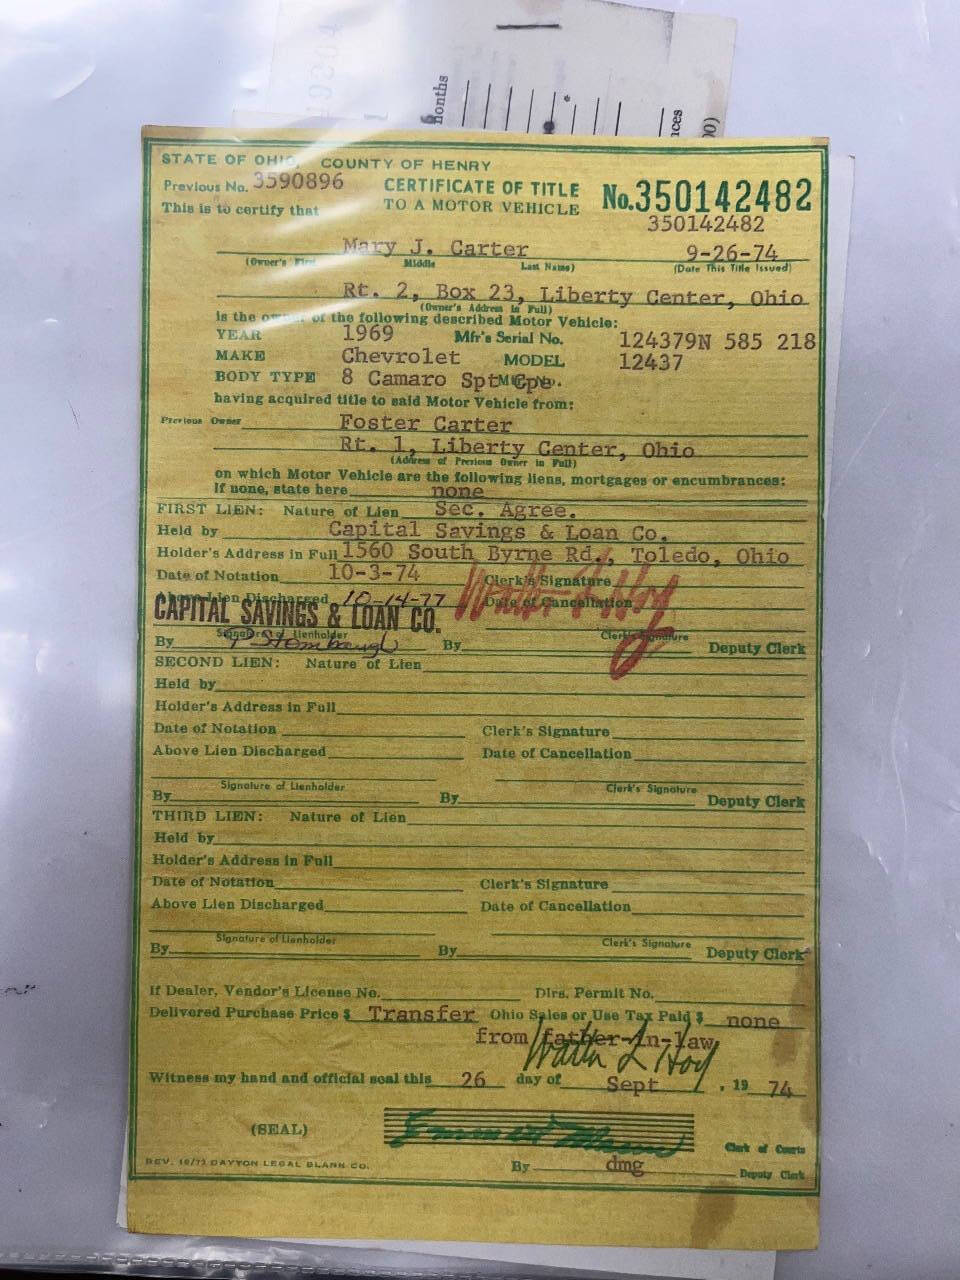 onths
ces
00)
STATE OF OHIO, COUNTY OF HENRY
Previous No. 3590896 CERTIFICATE OF TITLE No. 350142482
This is to certify that TO A MOTOR VEHICLE 350142482
Mary J. Carter 9-26-74
(Owner's First Middle Last Name) (Date This Title Issued)
Rt. 2, Box 23, Liberty Center, Ohio
(Owner's Address in Full)
is the owner of the following described Motor Vehicle:
YEAR 1969 Mfr's Serial No. 124379N 585 218
MAKE Chevrolet MODEL 12437
BODY TYPE 8 Camaro Spt Cpe.
having acquired title to said Motor Vehicle from:
Previous Owner Foster Carter
Rt. 1, Liberty Center, Ohio
(Address of Previous Owner in Full)
on which Motor Vehicle are the following liens, mortgages or encumbrances:
If none, state here none
FIRST LIEN: Nature of Lien Sec. Agree.
Held by Capital Savings & Loan Co.
Holder's Address in Full 1560 South Byrne Rd., Toledo, Ohio
Date of Notation 10-3-74 Clerk's Signature
Above Lien Discharged 10-14-77 Date of Cancellation
CAPITAL SAVINGS & LOAN CO.
Signature of Lienholder Clerk's Signature
By P Stombaugh By Deputy Clerk
SECOND LIEN: Nature of Lien
Held by
Holder's Address in Full
Date of Notation Clerk's Signature
Above Lien Discharged Date of Cancellation
Signature of Lienholder Clerk's Signature
By By Deputy Clerk
THIRD LIEN: Nature of Lien
Held by
Holder's Address in Full
Date of Notation Clerk's Signature
Above Lien Discharged Date of Cancellation
Signature of Lienholder Clerk's Signature
By By Deputy Clerk
If Dealer, Vendor's License No. Dlrs. Permit No.
Delivered Purchase Price $ Transfer Ohio Sales or Use Tax Paid $ none
from father-in-law
Witness my hand and official seal this 26 day of Sept , 19 74
(SEAL) Clerk of Courts
REV. 10/73 DAYTON LEGAL BLANK CO. By dmg Deputy Clerk